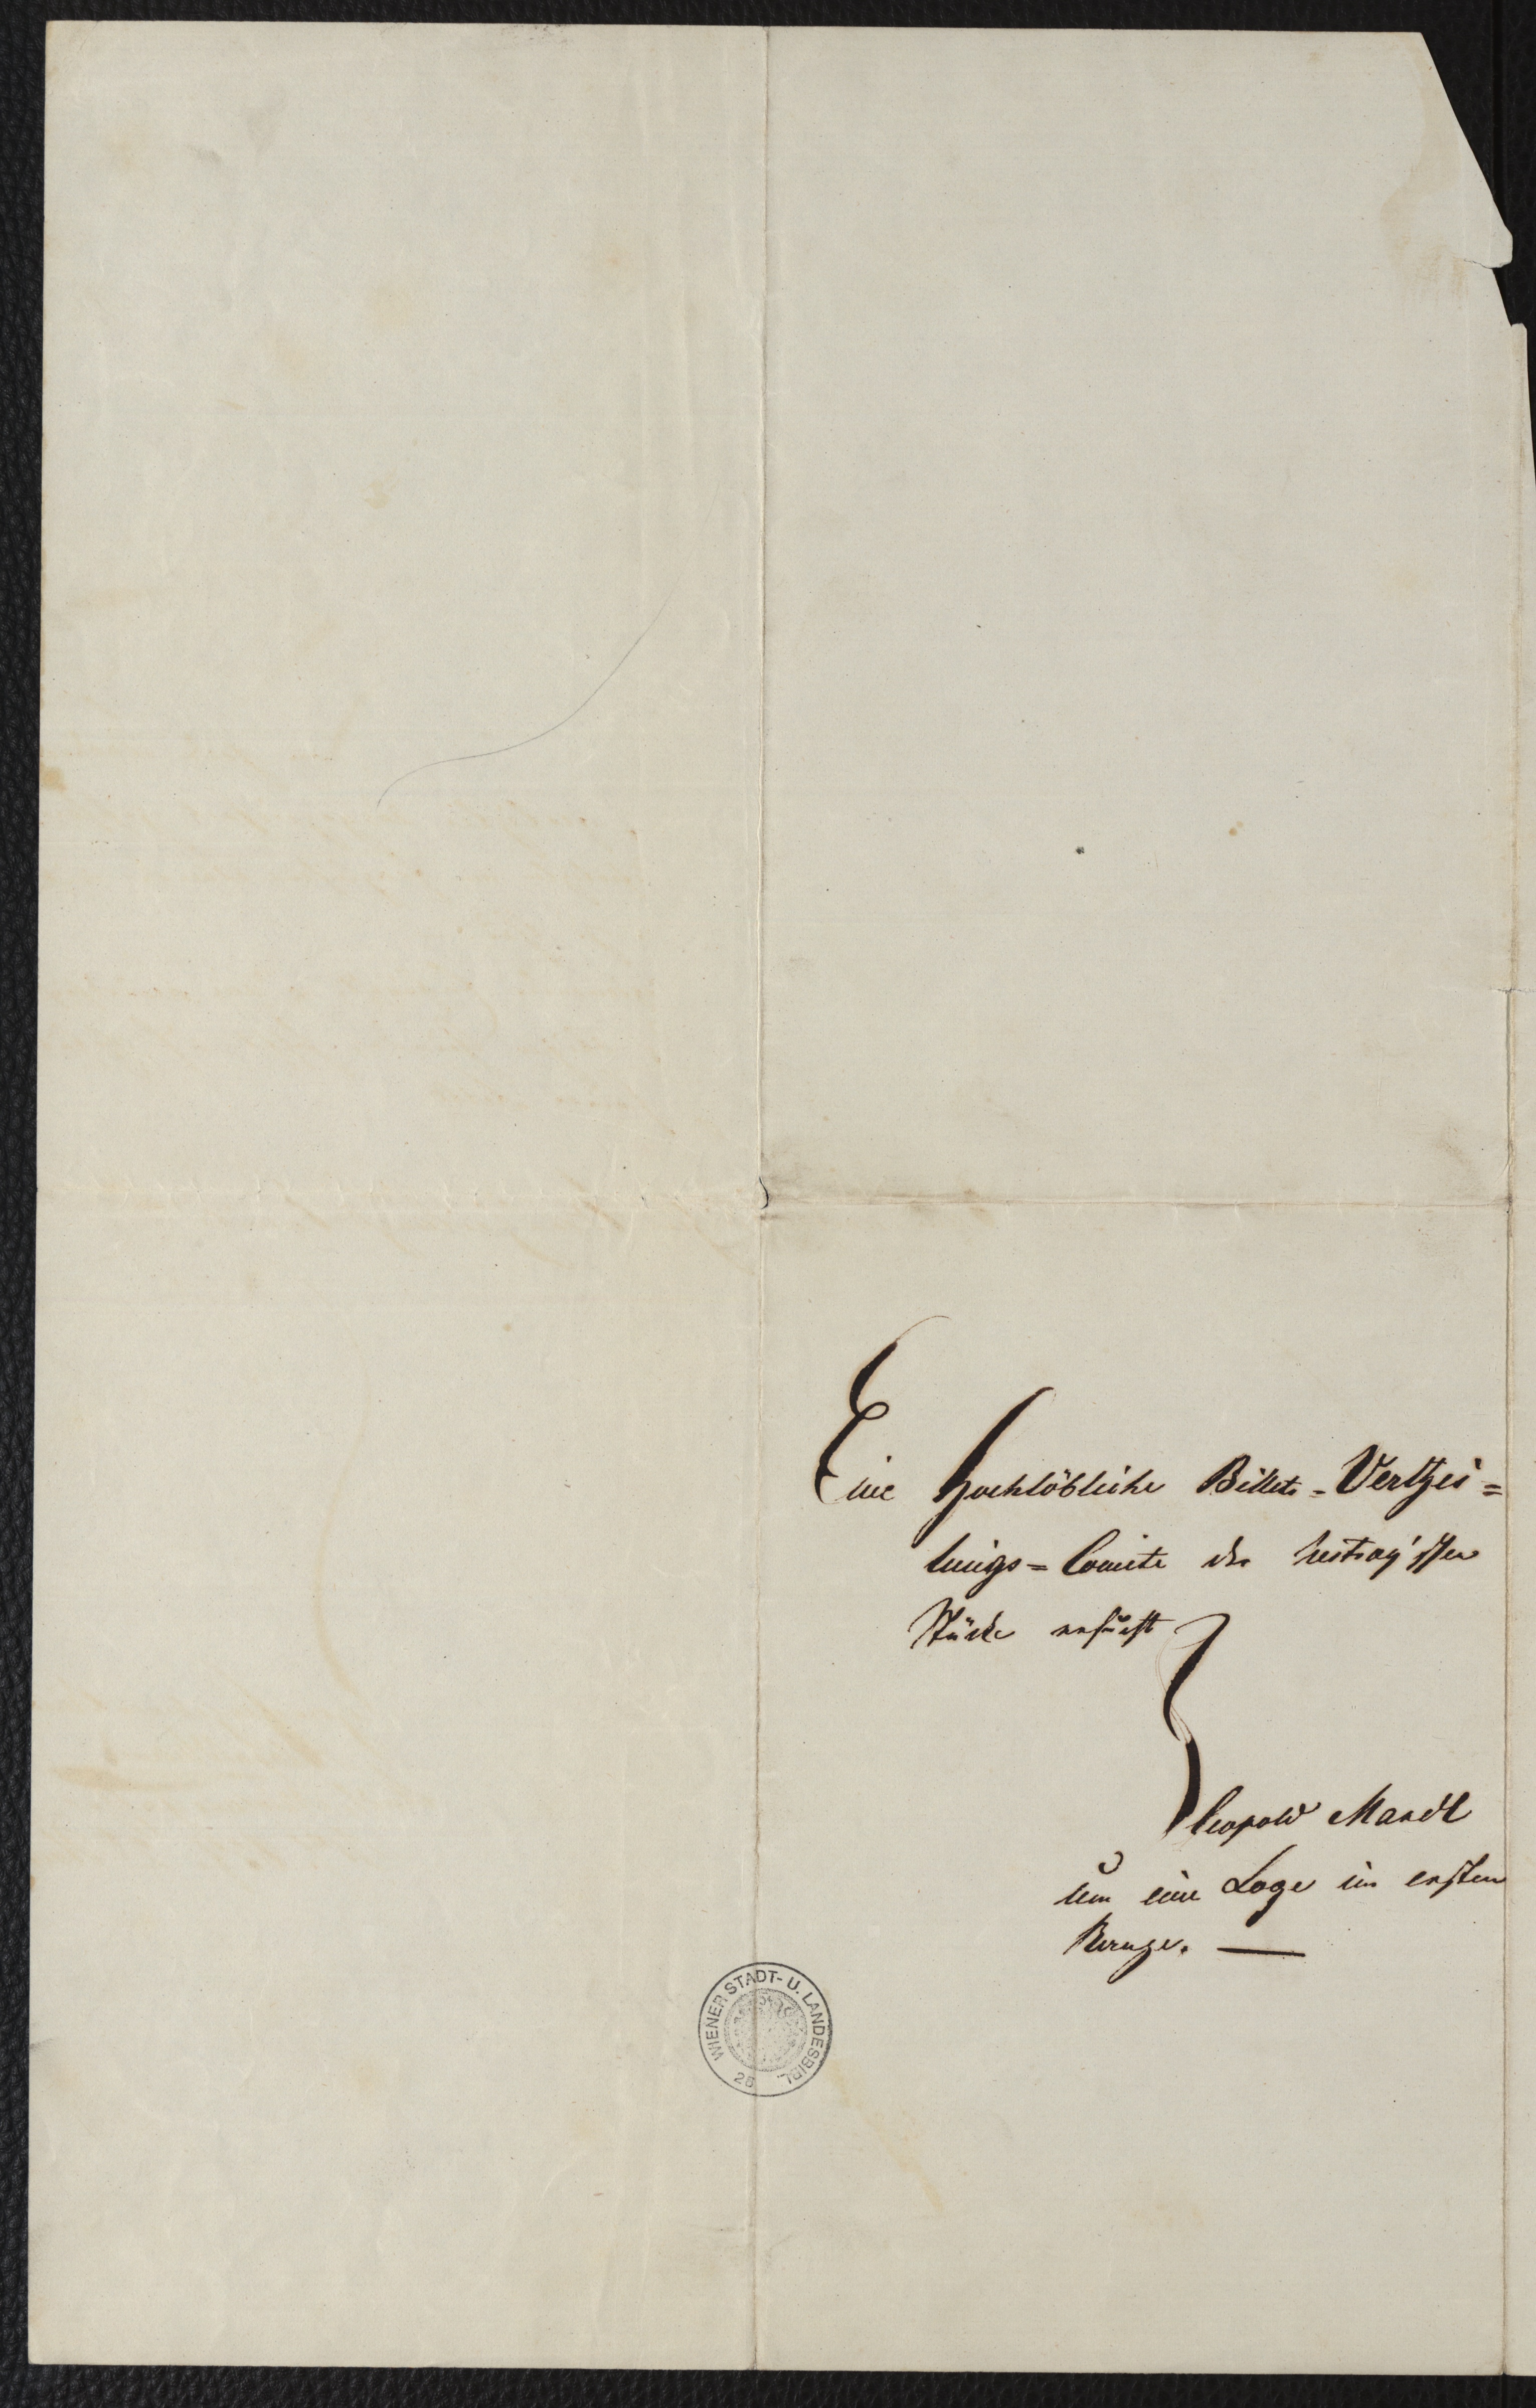 Eine Hochlöbliche Billets-Verthei=
lungs=Comité der Nestroy'schen
Stücke ersucht
Leopold Mandl
um eine Loge im ersten
Range. —
WIENER STADT- U. LANDESBIBL.
26